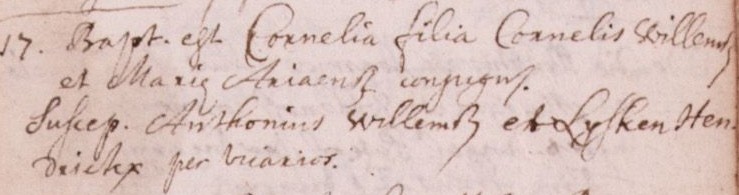 17. Bapt. est Cornelia filia Cornelis Willems
et Marię Ariaens conjugum.
Suscep. Anthonius Willems et Lysken Hen-
drickx per vicarios.